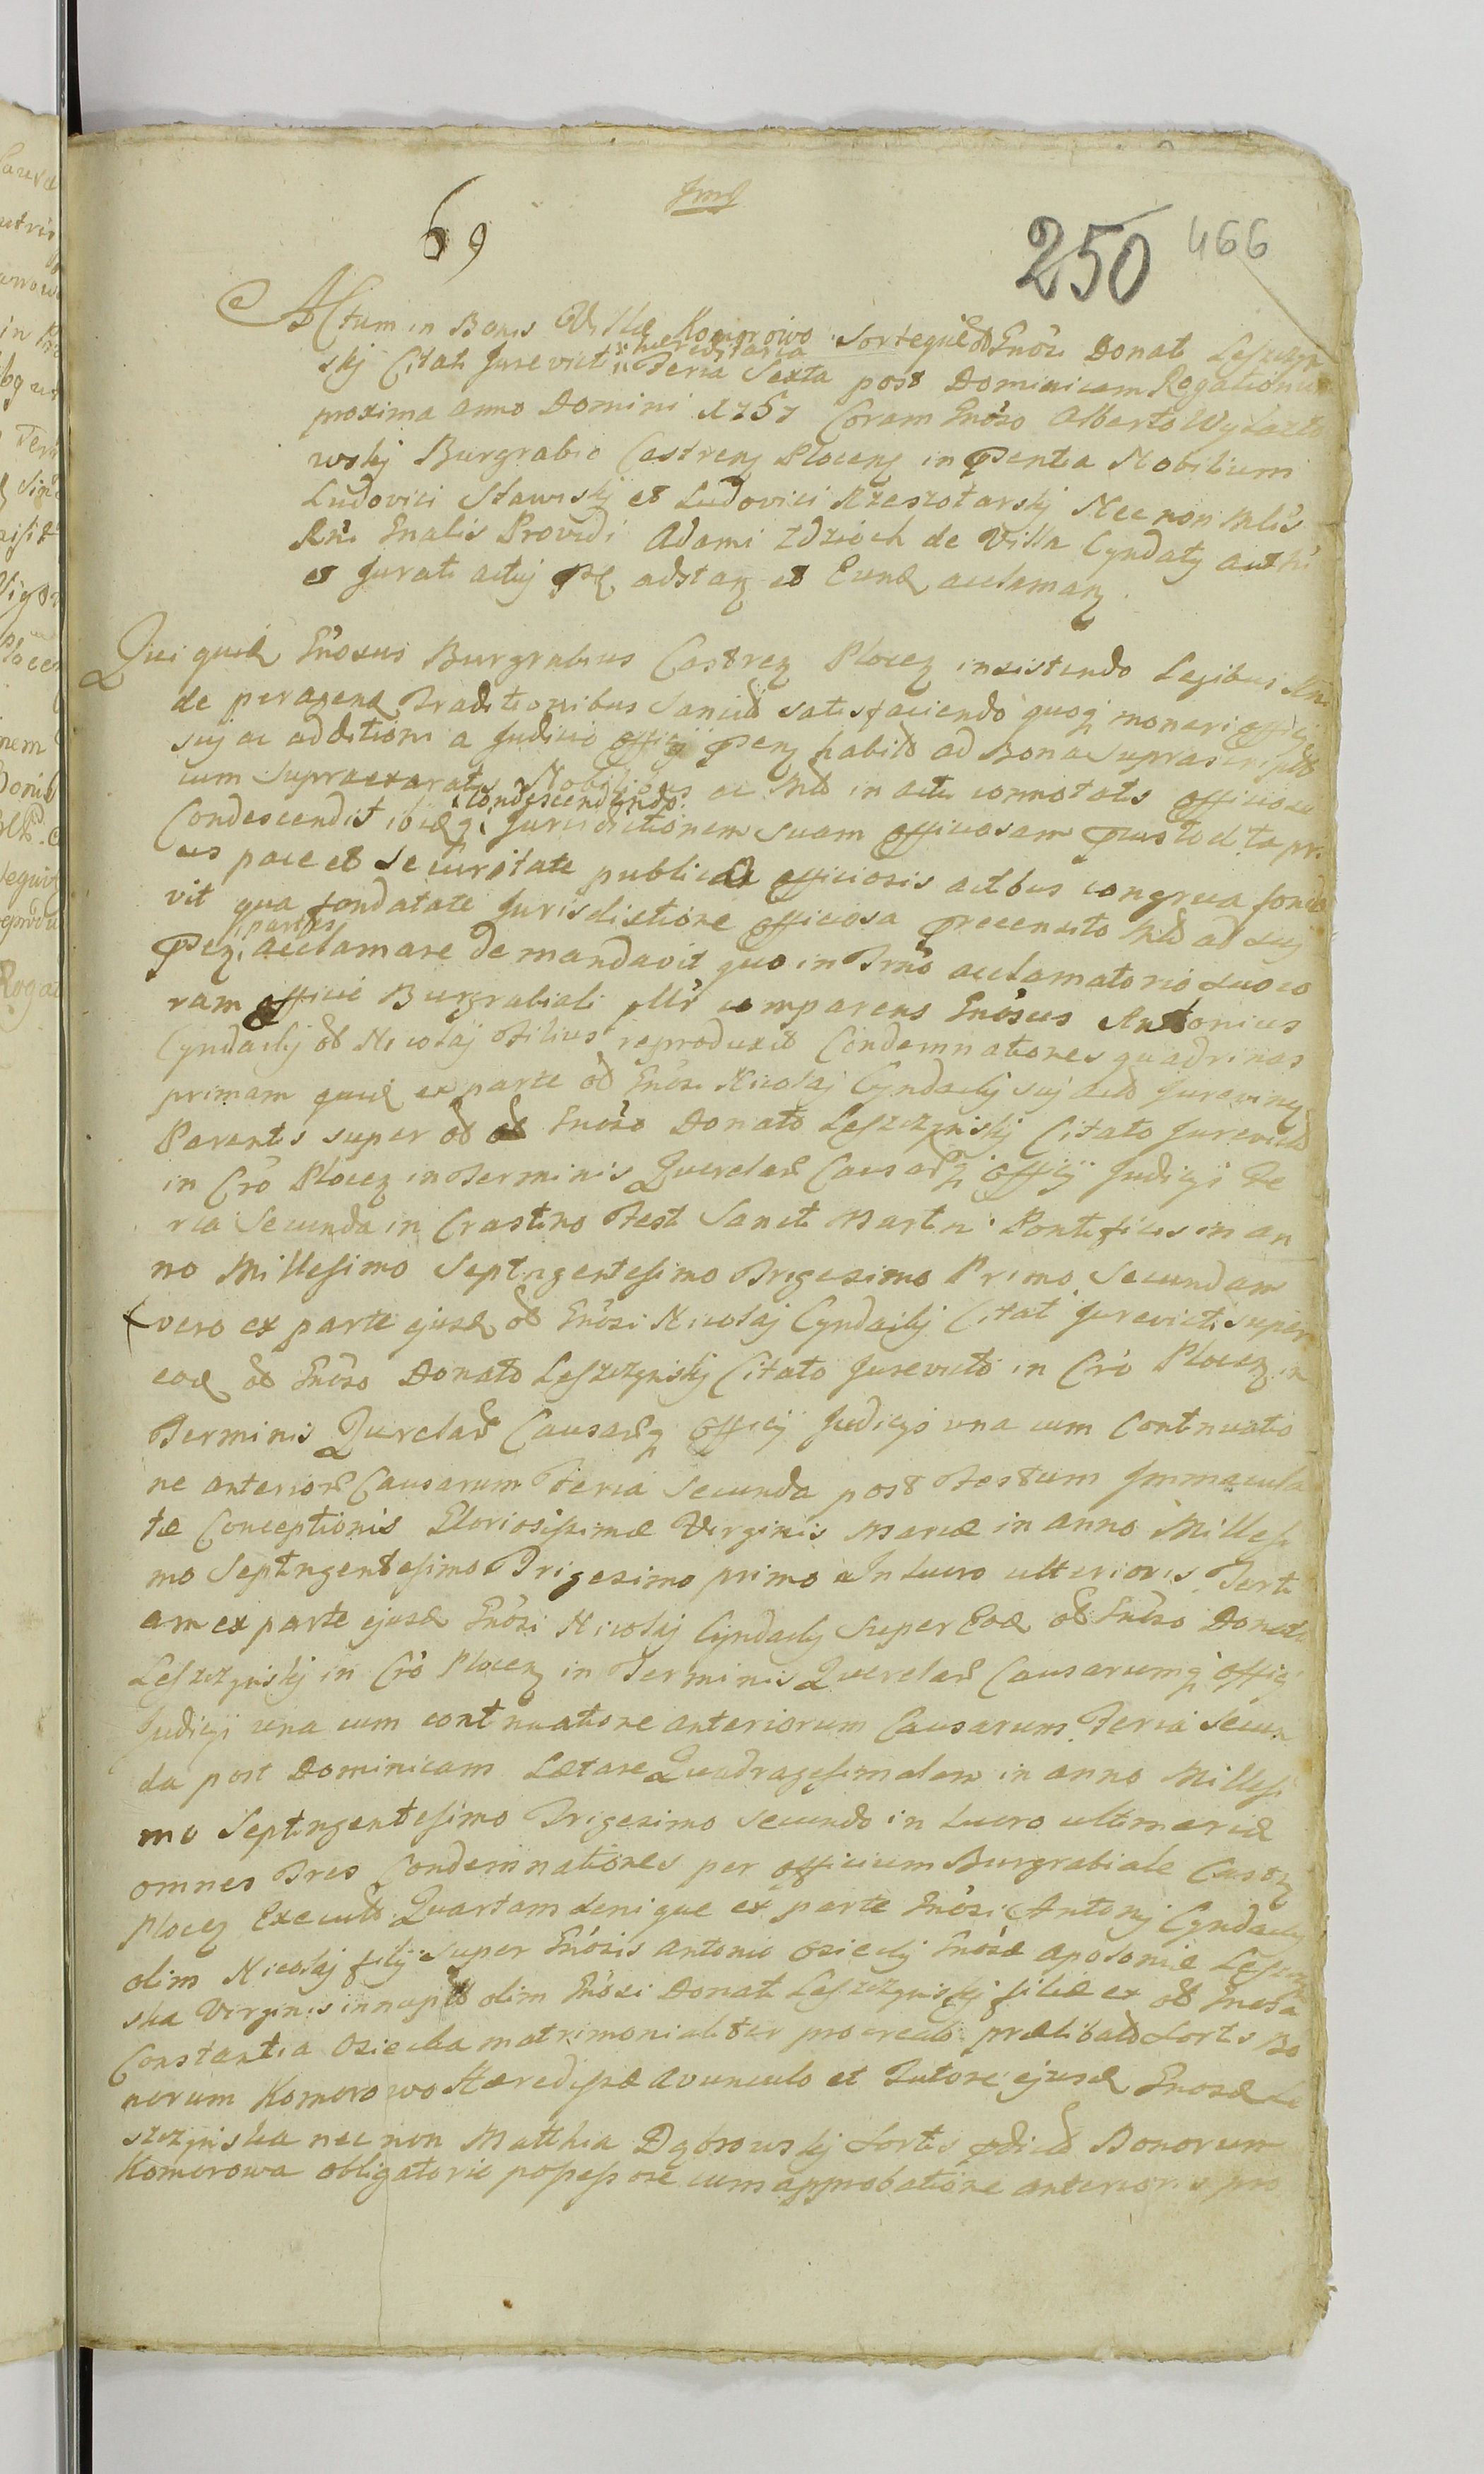 69
250 466
Actum in Bonis Villæ Komorowo Sorteque od Gnosi Donat Leszczyn
skj Citati Jurevicti hæreditaria Feria Sexta post Dominicam Rogationum
proxima Anno Domini 1757 Coram Gnoso Alberto Wylazło
wskj Burgrabio Castren Plocen in Pentia Nobilium
Ludovici Sławskj et Ludovici Rzeszotarskj Nec non Mlis
Rni Gnalis Providi Adami Zdzioch de Villa Cyndaty authi
et Jurati actuj adstan et Eund acclaman
Qui quid Gnosus Burgrabius Castren Plocen insistendo Legibus Rni
de peragend Traditionibus Sancit satisfaciendo quoq muneri officij
suj ac additioni a Judicio officij Pen habito ad Bona suprascripto
cum supraexaratis Nobilibus ac Mlo in actu connotatis officiose
Condescendit ibidq condescendendo Jurisdictionem suam officiosam
us pace et securitate publica officiosis actibus congrua funda
vit qua fundatate Jurisdictione officiosa præcensito Mlo ad suj
Pen partes acclamare demandavit quo in Trno acclamatorio suo co
ram officio Burgrabiali plr comparens Gnosus Antonius
Cyndackj od Nicolaj Filius reproduxit Condemnationes quadrinas
primam quid ex parte od Gnosi Nicolaj Cyndackj suj act Jurevincen
Parentis super od Gnoso Donato Leszczynskj Citato Jurevicto
in Cro Plocen in Terminis Querelar Causarq officij Judicij Fe
ria Secunda in Crastino Fest Sancti Martini Pontificis in an
no Millesimo Septingentesimo Trigesimo Primo Secundam
vero ex parte ejusd od Gnosi Nicolaj Cyndackj Citat Jurevicti super
eod od Gnoso Donato Leszczynskj Citato Jurevicto in Cro Plocen in
Terminis Querelar Causarq officij Judicij una cum Continuatio
ne anterior Causarum Feria Secunda post Festum Immacula
tæ Conceptionis Gloriosissimæ Virginis Mariæ in anno Millesi
mo Septingentesimo Trigesimo primo in Lucro ulterioris Terti
am ex parte ejusd Gnosi Nicolaj Cyndackj super Eod od Gnoso Donato
Leszczynskj in Cro Plocen in Terminis Querelar Causarumq officij
Judicij una cum continuatione anteriorum Causarum Feria Secun
da post Dominicam Lætare Quadragesimalem in anno Millesi
mo Septingentesimo Trigesimo Secundo in Lucro
omnes Tres Condemnationes per officium Burgrabiale Castren
Plocen Execut Quartam denique ex parte Gnosi Antonj Cyndackj
olim Nicolaj filij super Gnosis Antonio Osieckj Gnosæ Apoloniæ Leszczyn
ska Virginis innupt olim Gnosi Donat Leszczynskj filiæ ex od Gnosa
Constantia Osiecka matrimonialiter procreato prælibat Sortis Bo
norum Komorowo Hæredissæ Avunculo et Tutore ejusd Gnosæ Le
szczynska nec non Matthia Dąbrowskj Sortis Bonorum
Komorowa obligatorio possessore cum approbatione anterioris pro